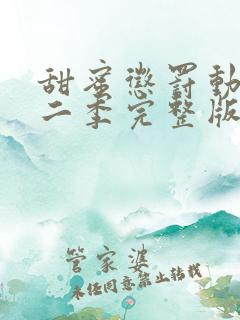 甜蜜惩罚动
二季完整版
管家婆
未经同意禁止转载